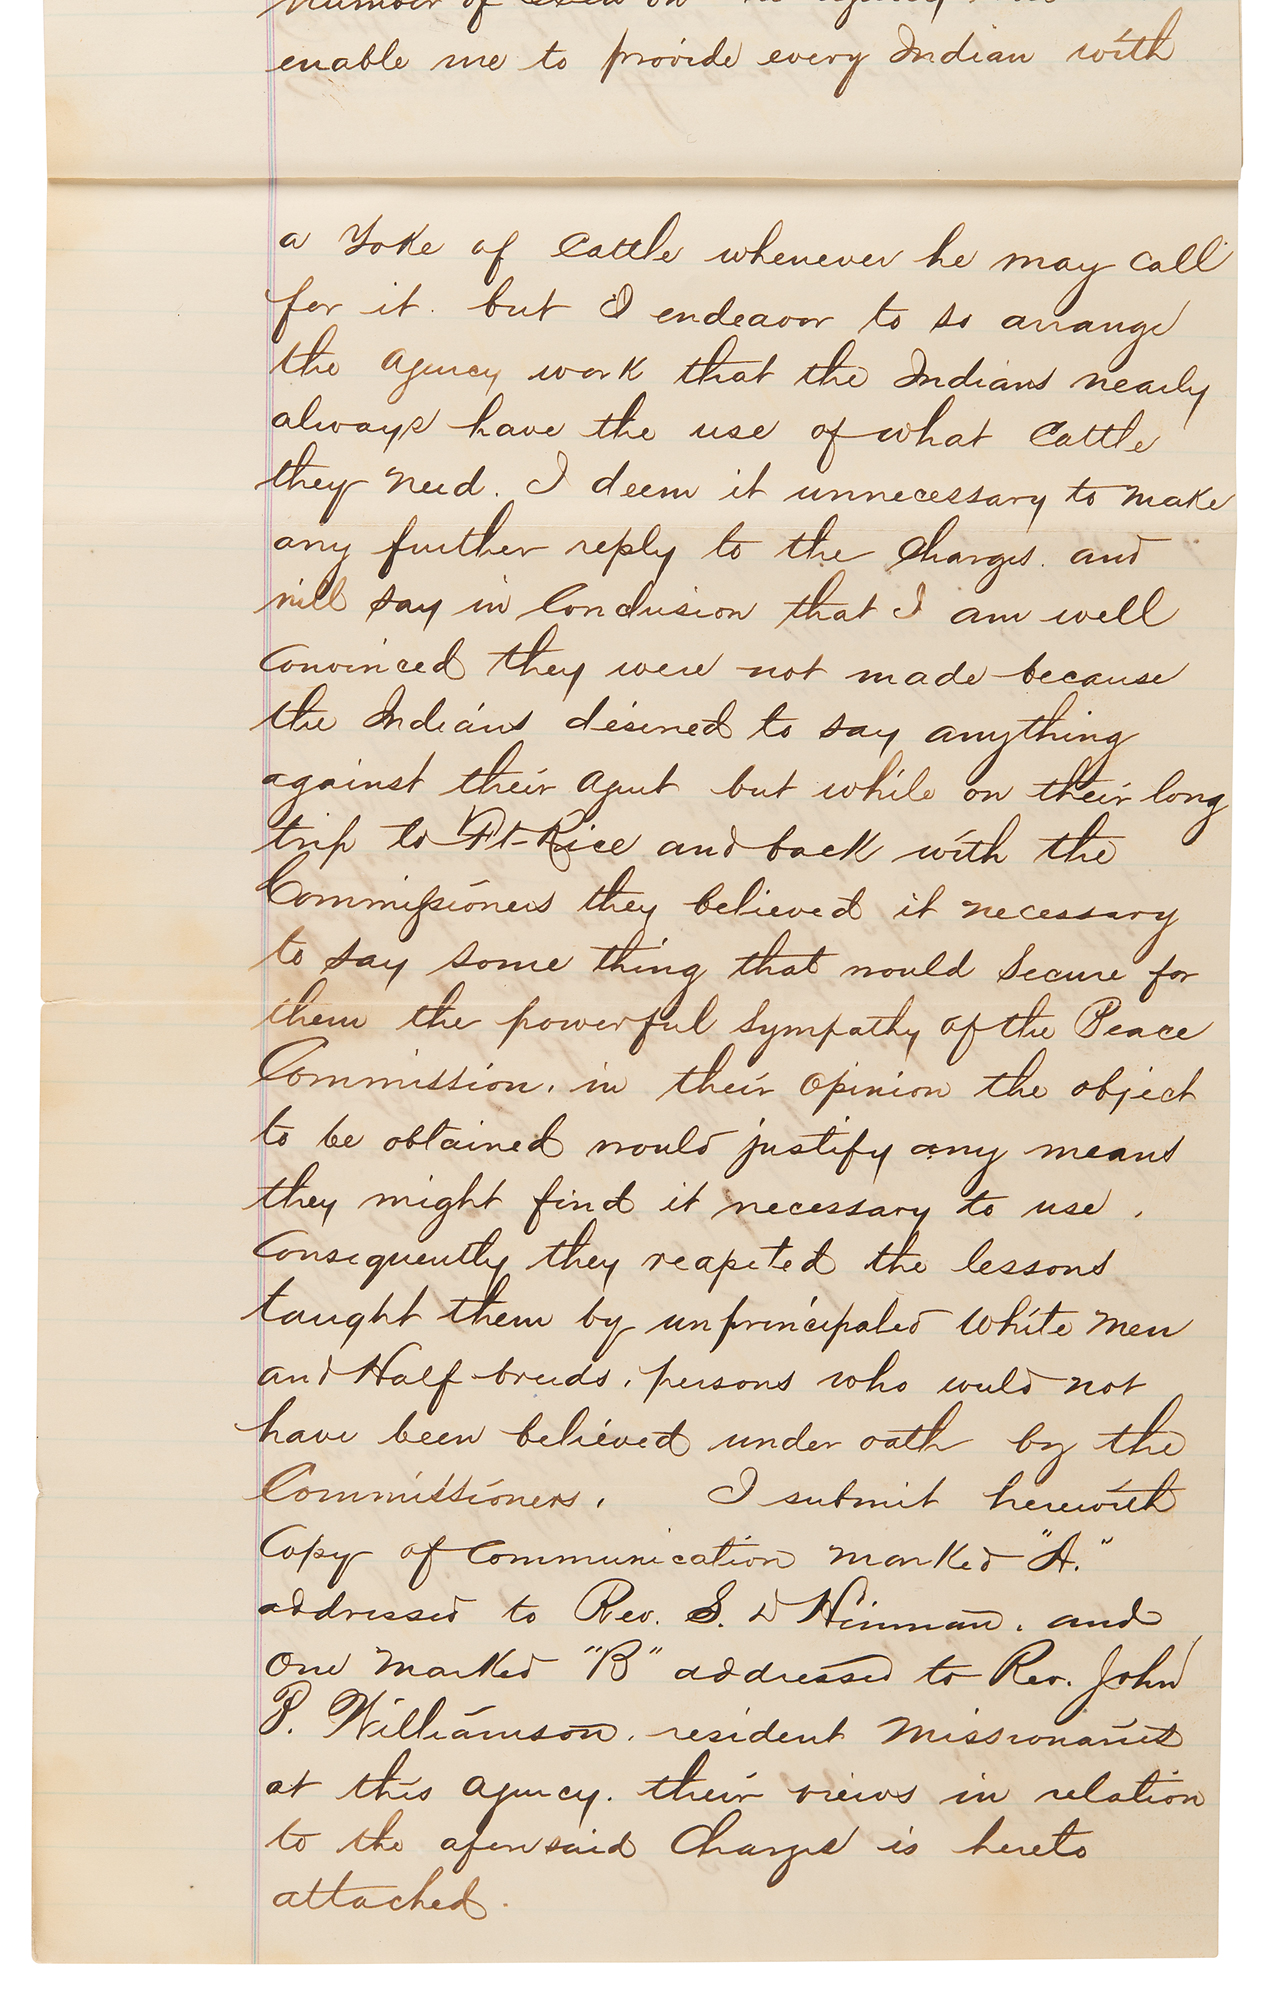 number of
enable me to provide every Indian with
a Yoke of Cattle whenever he may call
for it. but I endeavor to so arrange
the Agency work that the Indians nearly
always have the use of what Cattle
they need. I deem it unnecessary to make
any further reply to the Charges. and
will say in Conclusion that I am well
Convinced they were not made because
the Indians desired to say anything
against their Agent but while on their long
trip to Ft. Rice and back with the
Commissioners they believed it necessary
to say some thing that would Secure for
them the powerful Sympathy of the Peace
Commission. in their Opinion the object
to be obtained would justify any means
they might find it necessary to use.
Consequently they reapeted the lessons
taught them by unprincipaled White Men
and Half-breeds, persons who would not
have been believed under oath by the
Commissioners. I submit herewith
Copy of Communication marked "A."
addressed to Rev. S. D Hinman. and
One Marked "B" addressed to Rev. John
P. Williamson. resident Missionaries
at this Agency. their views in relation
to the aforesaid Charges is hereto
attached.